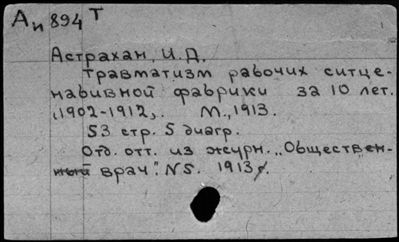 Аи 894 Т
Астрахан, И.Д.
Травматизм рабочих ситце-
набивной фабрики за 10 лет.
(1902-1912). М., 1913.
53 стр. 5 диагр.
Отд. отт. из журн. „Обществен-
ный врач". N5. 1913г.